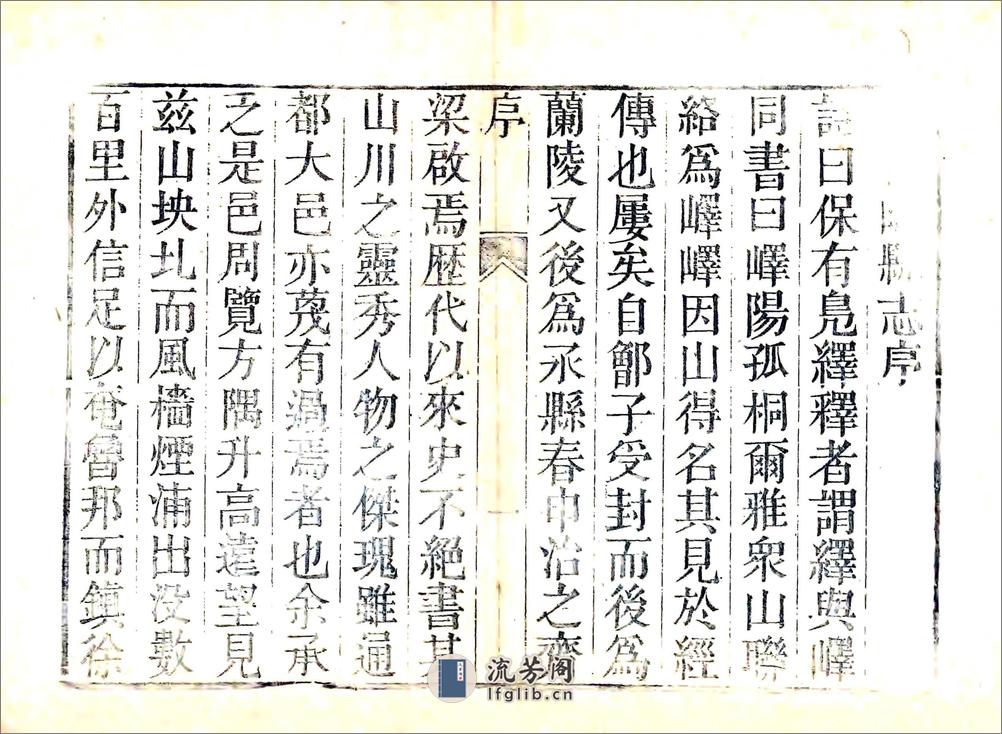 縣志序
詩曰保有鳧繹釋者謂繹與嶧
同書曰嶧陽孤桐爾雅衆山聯
絡爲嶧嶧因山得名其見於經
傳也屢矣自鄫子受封而後爲
蘭陵又後爲氶縣春申治之齊
序
一
梁啟焉歴代以來史不絕書其
山川之靈秀人物之傑瑰雖通
都大邑亦蔑有過焉者也余承
之是邑周覽方隅升高遠望見
兹山坱圠而風檣煙浦出没數
百里外信足以奄魯邦而鎮徐
流芳阁
lfglib.cn